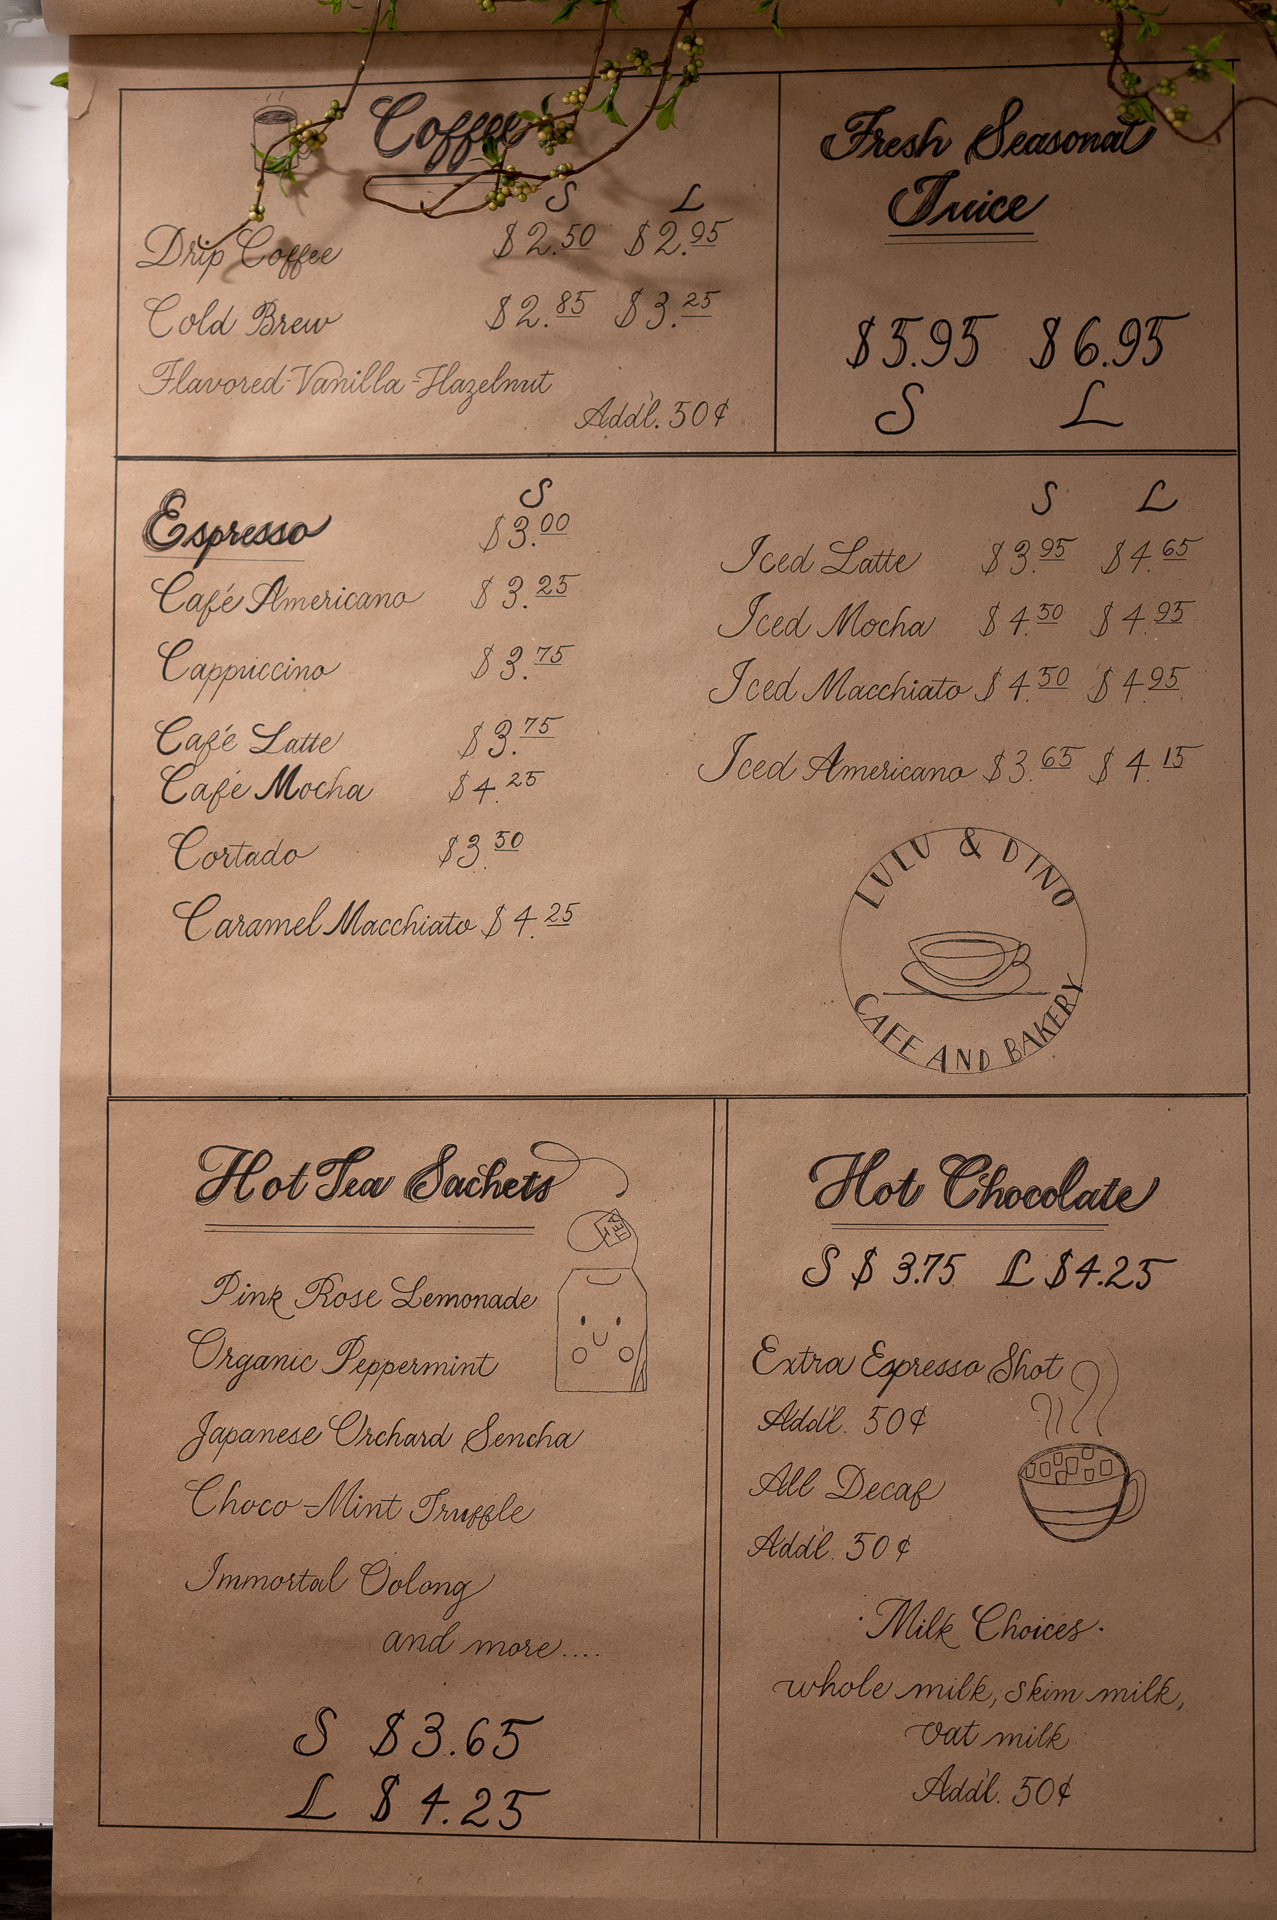 Coffee
S L
Drip Coffee $2.50 $2.95
Cold Brew $2.85 $3.25
Flavored-Vanilla-Hazelnut
Add'l. 50¢
Fresh Seasonal
Juice
$5.95 $6.95
S L
S
Espresso $3.00
Café Americano $3.25
Cappuccino $3.75
Café Latte $3.75
Café Mocha $4.25
Cortado $3.50
Caramel Macchiato $4.25
S L
Iced Latte $3.95 $4.65
Iced Mocha $4.50 $4.95
Iced Macchiato $4.50 $4.95
Iced Americano $3.65 $4.15
LULU & DINO
CAFE AND BAKERY
Hot Tea Sachets
TEA
Pink Rose Lemonade
Organic Peppermint
Japanese Orchard Sencha
Choco-Mint Truffle
Immortal Oolong
and more....
S $3.65
L $4.25
Hot Chocolate
S $3.75 L $4.25
Extra Espresso Shot
Add'l. 50¢
All Decaf
Add'l. 50¢
·Milk Choices·
whole milk, skim milk,
oat milk
Add'l. 50¢